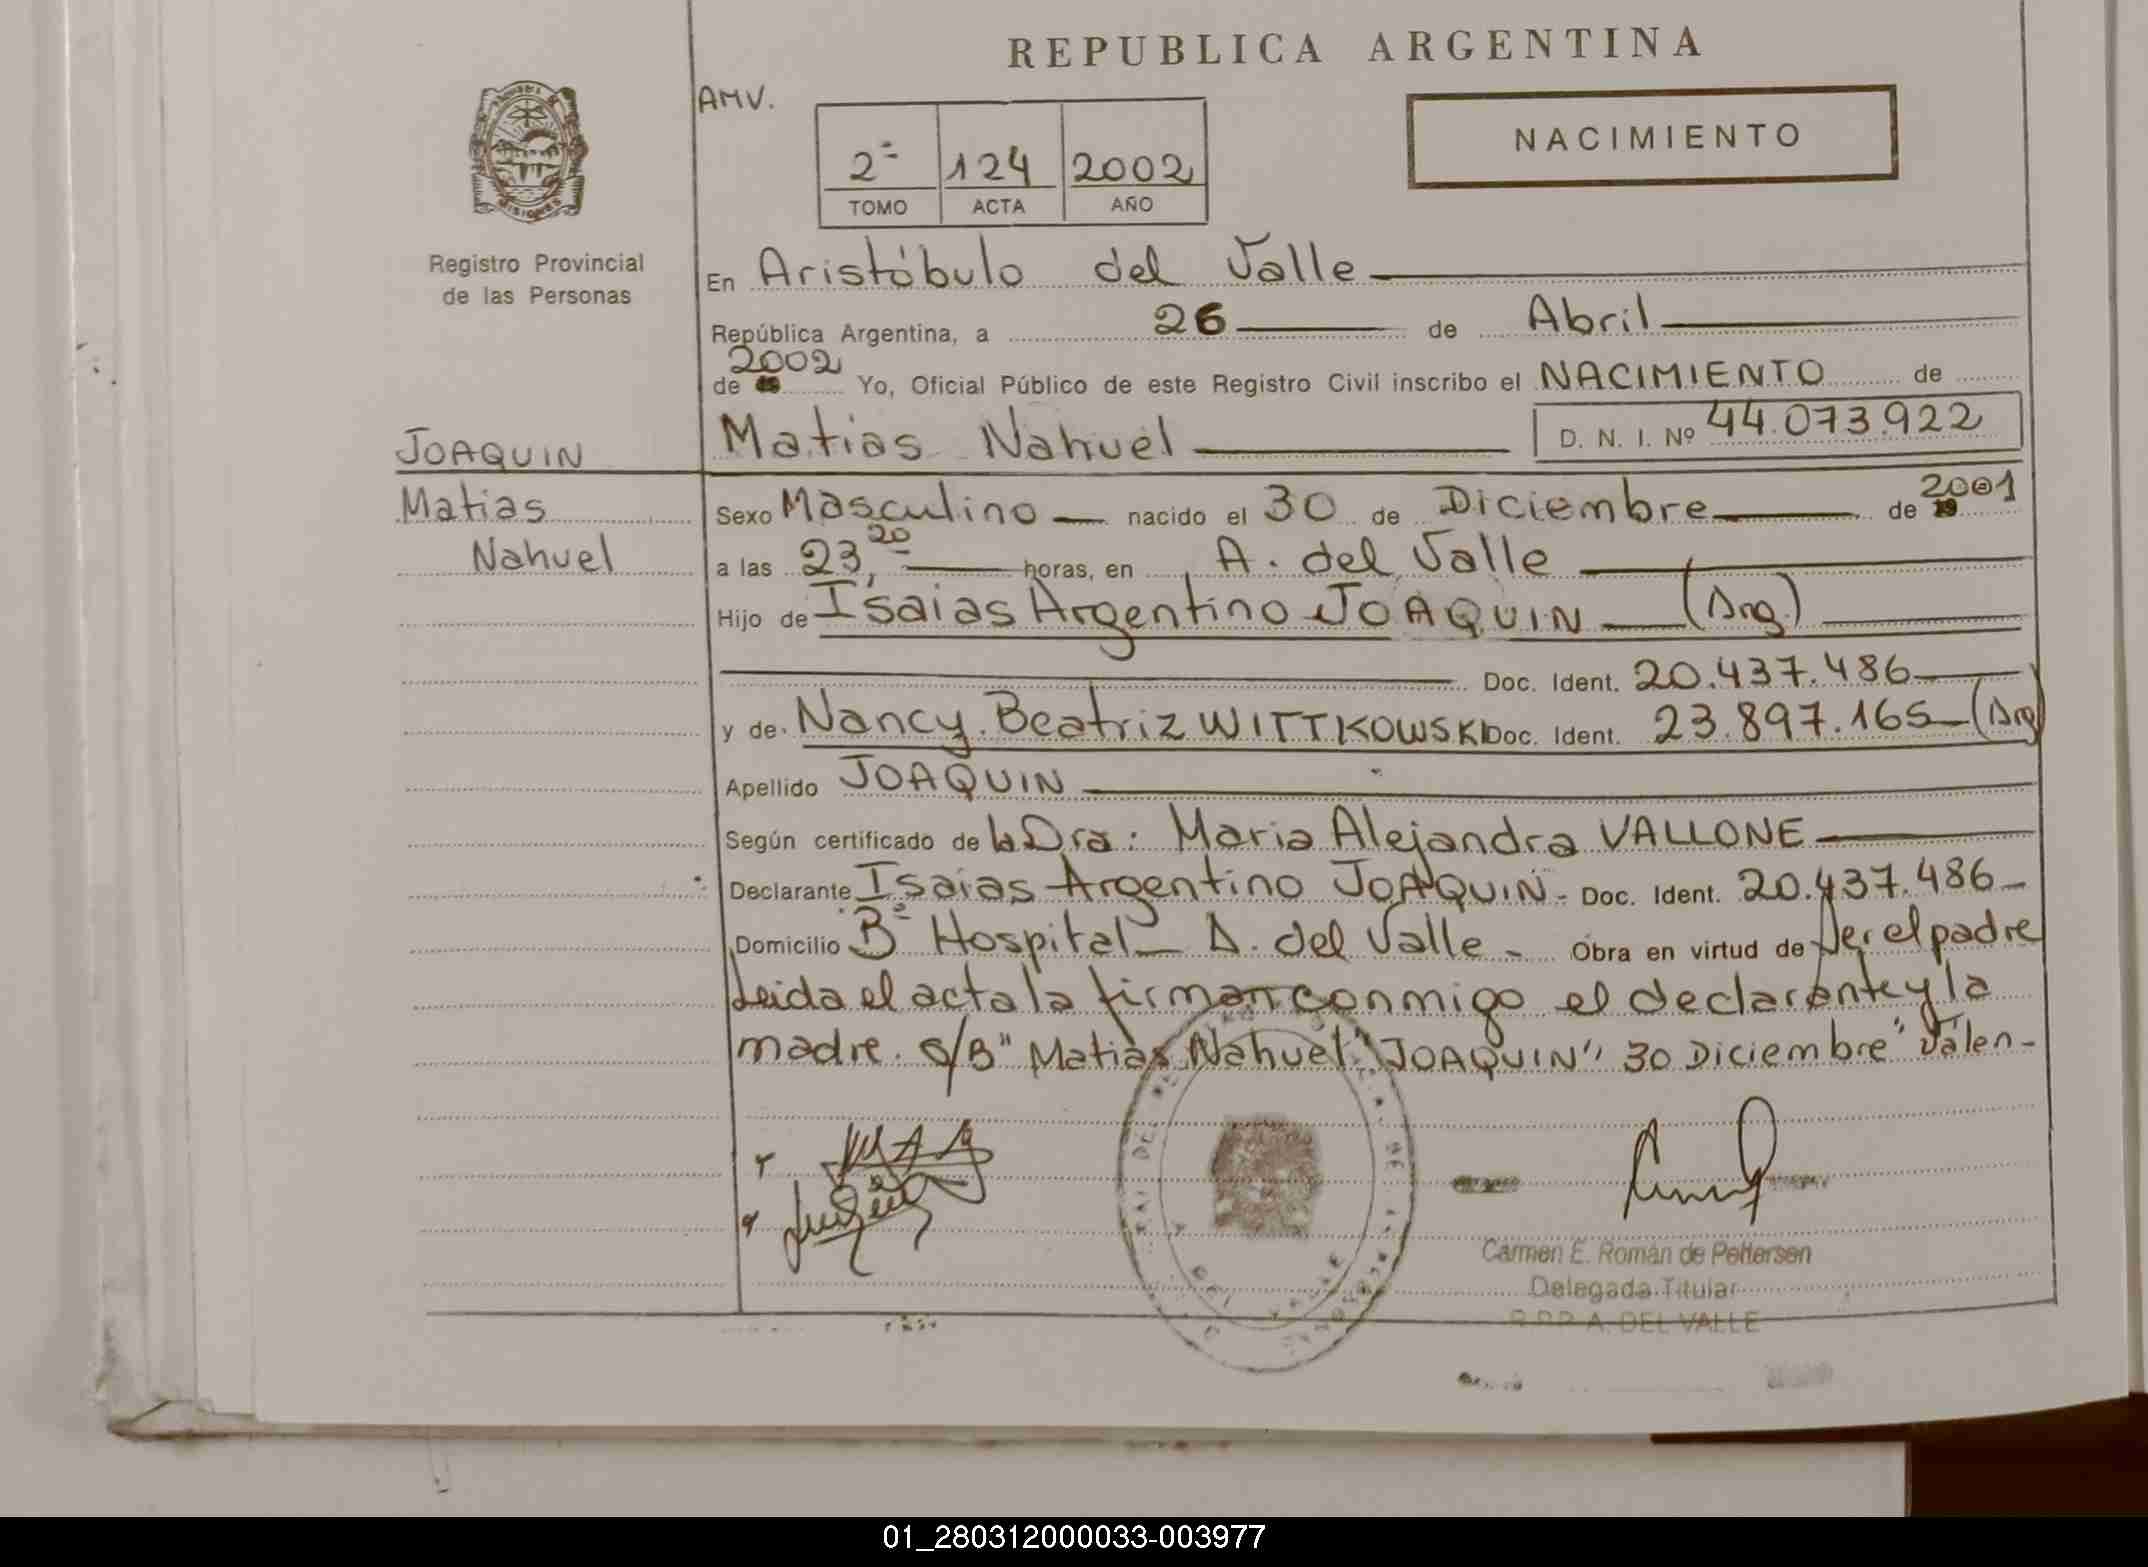 REPUBLICA ARGENTINA
AMV.
NACIMIENTO
2º 124 2002
TOMO ACTA AÑO
Registro Provincial
de las Personas
En Aristóbulo del Valle
República Argentina, a 26 de Abril
2002
de 19 Yo, Oficial Público de este Registro Civil inscribo el NACIMIENTO de
Matias Nahuel D. N. I. Nº 44.073.922
JOAQUIN
Matias
Nahuel
Sexo Masculino nacido el 30 de Diciembre de 19 2001
a las 23,20 horas, en A. del Valle
Hijo de Isaias Argentino JOAQUIN (Arg.)
Doc. Ident. 20.437.486
y de Nancy Beatriz WITTKOWSKI Doc. Ident. 23.897.165 (Arg)
Apellido JOAQUIN
Según certificado de la Dra: Maria Alejandra VALLONE
Declarante Isaias Argentino JOAQUIN - Doc. Ident. 20.437.486
Domicilio Bº Hospital - A. del Valle - Obra en virtud de Ser el padre
Leida el acta la firman conmigo el declarante y la
madre. S/B " Matias Nahuel "JOAQUIN" 30 Diciembre" Valen-
Carmen E. Román de Pettersen
Delegada Titular
R.P.P. A. DEL VALLE
01_280312000033-003977